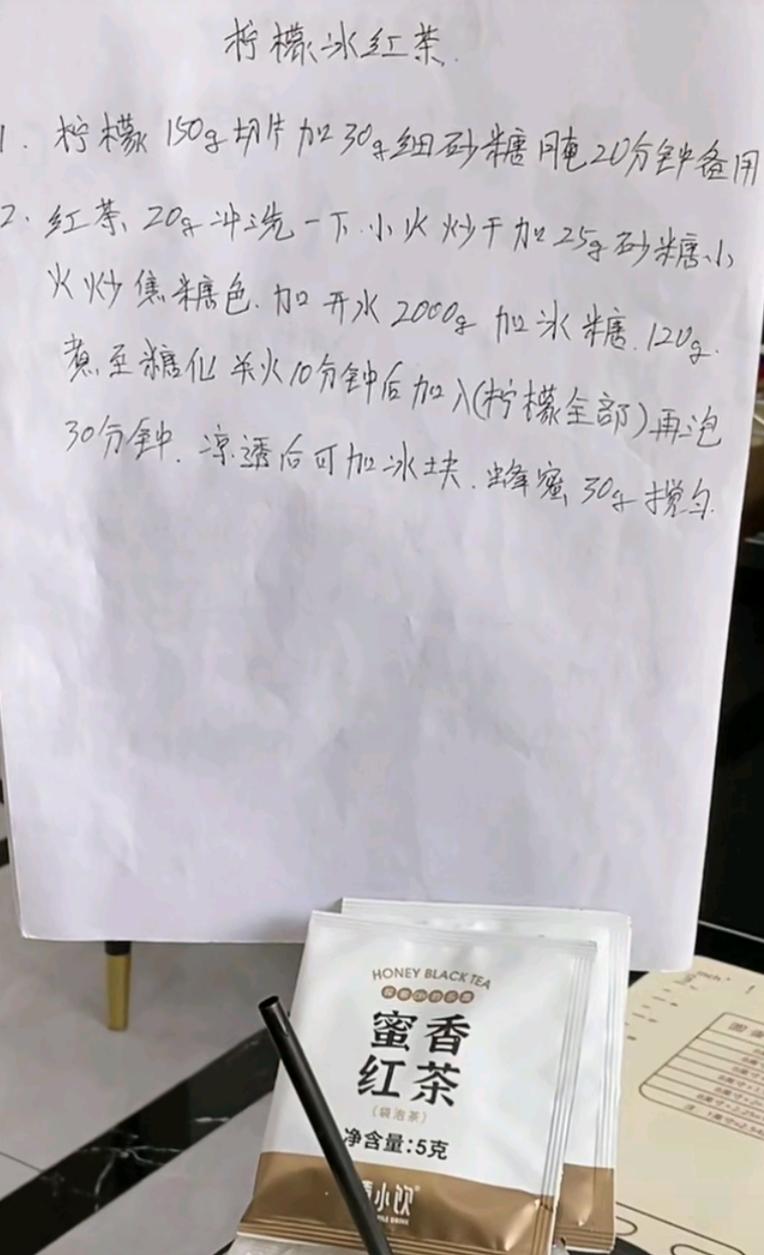 柠檬冰红茶.
1. 柠檬150g切片加30g细砂糖腌20分钟备用
2. 红茶、20g冲洗一下.小火炒干加25g砂糖小
火炒焦糖色.加开水2000g加冰糖.120g.
煮至糖化关火10分钟后加入(柠檬全部)再泡
30分钟.凉透后可加冰块.蜂蜜30g搅匀.
HONEY BLACK TEA
蜜香
红茶
(袋泡茶)
净含量:5克
小饮